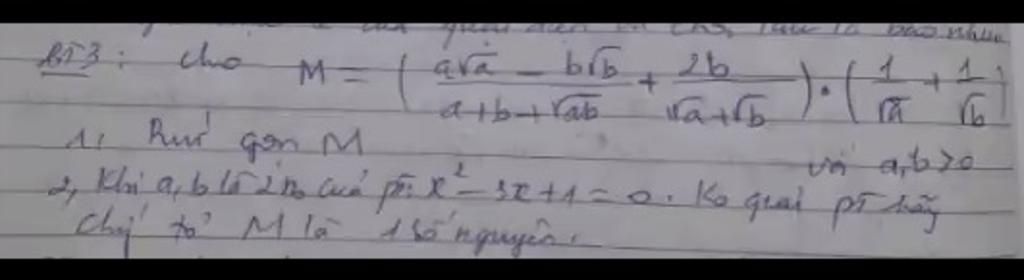 BT3: cho M = ( (a√a - b√b)/(a+b+√ab) + 2b/(√a+√b) ) . ( 1/√a + 1/√b )
1, Rút gọn M với a,b>0
2, Khi a,b là 2 no của pt: x² - 3x + 1 = 0. Ko giải pt hãy
Chứ tỏ M là 1 số nguyên.